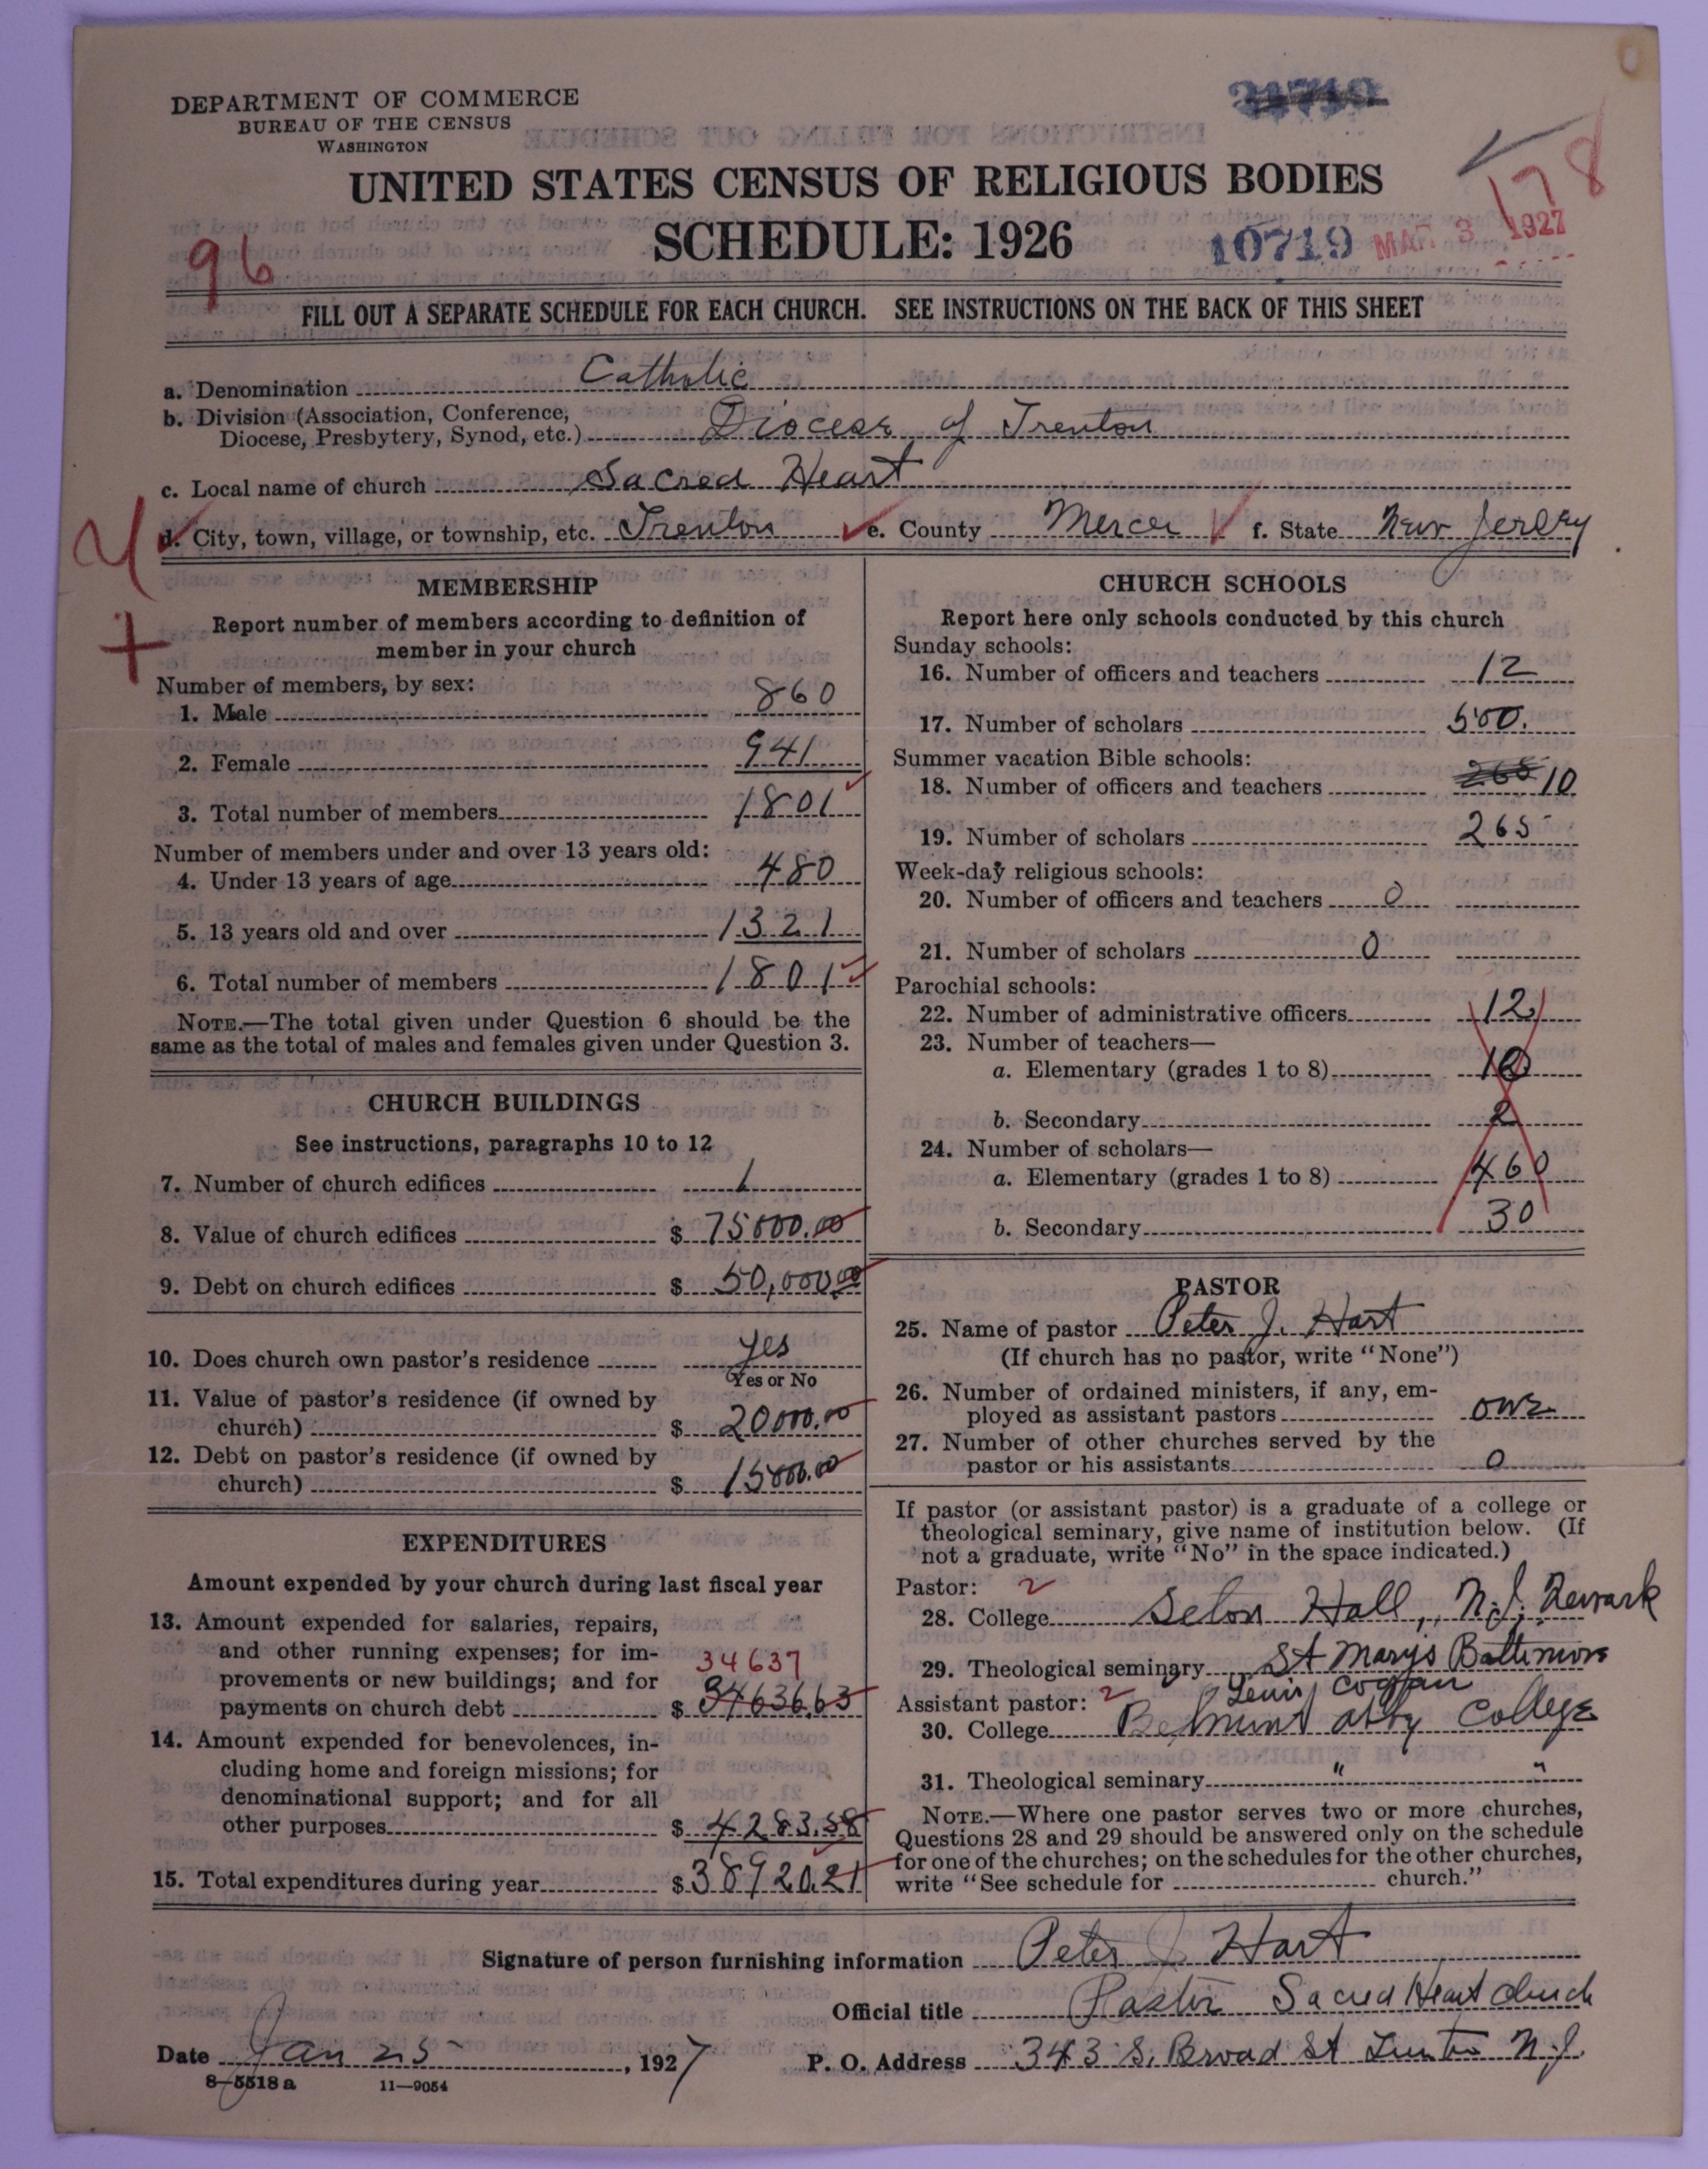 DEPARTMENT OF COMMERCE
BUREAU OF THE CENSUS
WASHINGTON
UNITED STATES CENSUS OF RELIGIOUS BODIES
178
SCHEDULE: 1926
10719 MAR 3 1927
96
FILL OUT A SEPARATE SCHEDULE FOR EACH CHURCH. SEE INSTRUCTIONS ON THE BACK OF THIS SHEET
a. Denomination Catholic
b. Division (Association, Conference, Diocese, Presbytery, Synod, etc.) Diocese of Trenton
c. Local name of church Sacred Heart
d. City, town, village, or township, etc. Trenton e. County Mercer f. State New Jersey
MEMBERSHIP
Report number of members according to definition of
member in your church
Number of members, by sex:
1. Male 860
2. Female 941
3. Total number of members 1801
Number of members under and over 13 years old:
4. Under 13 years of age 480
5. 13 years old and over 1321
6. Total number of members 1801
NOTE.—The total given under Question 6 should be the
same as the total of males and females given under Question 3.
CHURCH BUILDINGS
See instructions, paragraphs 10 to 12
7. Number of church edifices 1
8. Value of church edifices $ 75000.00
9. Debt on church edifices $ 50,000.00
10. Does church own pastor's residence yes
Yes or No
11. Value of pastor's residence (if owned by
church) $ 20000.00
12. Debt on pastor's residence (if owned by
church) $ 15000.00
EXPENDITURES
Amount expended by your church during last fiscal year
13. Amount expended for salaries, repairs,
and other running expenses; for im-
provements or new buildings; and for 34637
payments on church debt $ 34636.63
14. Amount expended for benevolences, in-
cluding home and foreign missions; for
denominational support; and for all
other purposes $ 4283.58
15. Total expenditures during year $ 38920.21
CHURCH SCHOOLS
Report here only schools conducted by this church
Sunday schools:
16. Number of officers and teachers 12
17. Number of scholars 500.
Summer vacation Bible schools:
18. Number of officers and teachers 265 10
19. Number of scholars 265
Week-day religious schools:
20. Number of officers and teachers 0
21. Number of scholars 0
Parochial schools:
22. Number of administrative officers 12
23. Number of teachers—
a. Elementary (grades 1 to 8) 10
b. Secondary 2
24. Number of scholars—
a. Elementary (grades 1 to 8) 460
b. Secondary 30
PASTOR
25. Name of pastor Peter J. Hart
(If church has no pastor, write "None")
26. Number of ordained ministers, if any, em-
ployed as assistant pastors one
27. Number of other churches served by the
pastor or his assistants 0
If pastor (or assistant pastor) is a graduate of a college or
theological seminary, give name of institution below. (If
not a graduate, write "No" in the space indicated.)
Pastor: 2
28. College Seton Hall, N.J. Newark
29. Theological seminary St Marys Baltimore
Assistant pastor: 2 Lewis
30. College Belmont abby College
31. Theological seminary " "
NOTE.—Where one pastor serves two or more churches,
Questions 28 and 29 should be answered only on the schedule
for one of the churches; on the schedules for the other churches,
write "See schedule for church."
Signature of person furnishing information Peter J. Hart
Official title Pastor Sacred Heart Church
Date Jan 25, 1927 P. O. Address 343 S. Broad St Trenton N.J.
8—5518 a 11—9054